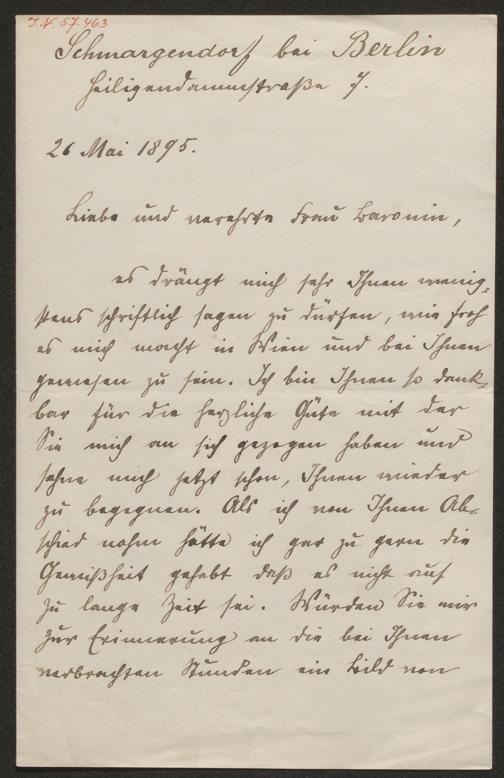 I.N. 57.463
Schmargendorf bei Berlin
Heiligendammstraße 7.
26 Mai 1895.
Liebe und verehrte Frau Baronin,
es drängt mich sehr Ihnen wenig-
stens schriftlich sagen zu dürfen, wie froh
es mich macht in Wien und bei Ihnen
gewesen zu sein. Ich bin Ihnen so dank-
bar für die herzliche Güte mit der
Sie mich an sich gezogen haben und
sehne mich jetzt schon, Ihnen wieder
zu begegnen. Als ich von Ihnen Ab-
schied nahm hätte ich gar zu gern die
Gewißheit gehabt daß es nicht auf
zu lange Zeit sei. Würden Sie mir
zur Erinnerung an die bei Ihnen
verbrachten Stunden ein Bild von